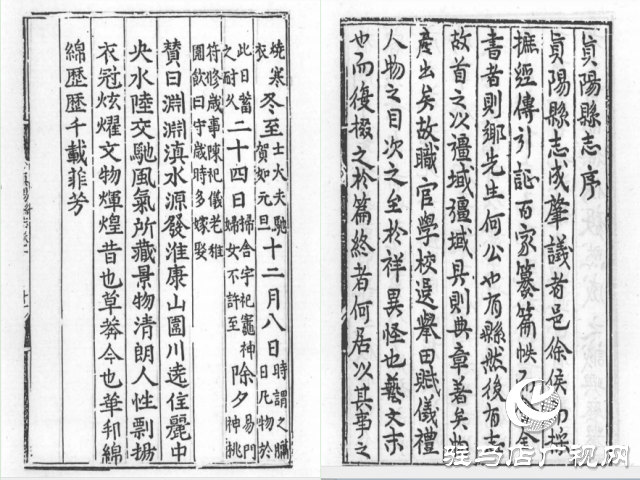 眞陽縣志序
眞陽縣志成肇議者邑徐侯而操
摭經傳引証百家纂篇帙金
書者則鄉先生何公也有縣然後有志
故首之以疆域疆域具則典章著矣物
產出矣故職官學校選舉田賦儀禮
人物之目次之至於祥異怪也藝文末
也而復掇之於篇終者何居以其事之
燒寒衣冬至士大夫馳賀如元旦十二月八日時謂之臘日凡物於
此日蓄之耐久二十四日掃舍宇祀竈神婦女不許至除夕易門神桃
符修歲事陳祀儀老稚
圍飲曰守歲時多嫁娶
贊曰淵淵滇水源發淮康山圍川遶佳麗中
央水陸交馳風氣所藏景物清朗人性剽揚
衣冠炫燿文物煇煌昔也草莽今也華邦綿
綿歷歷千載菲芳
驻马店广视网